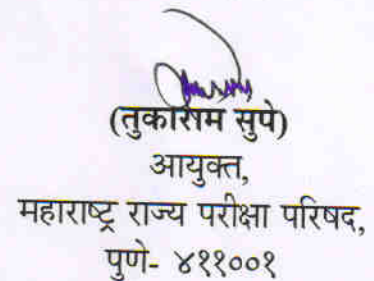 (तुकाराम सुपे)
आयुक्त,
महाराष्ट्र राज्य परीक्षा परिषद,
पुणे- ४११००१